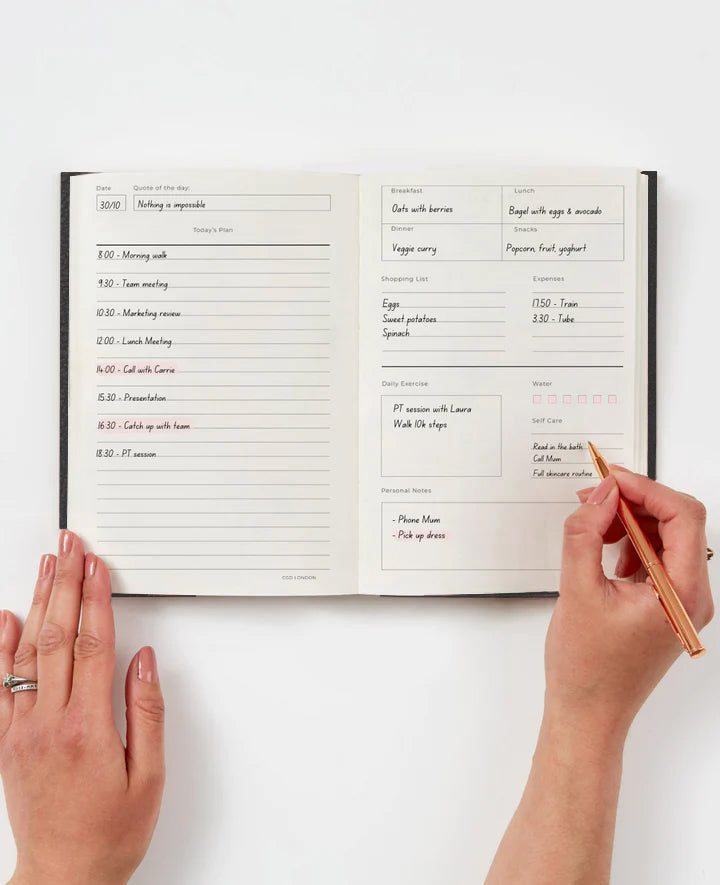 Date
Quote of the day:
30/10
Nothing is impossible
Today's Plan
8:00 - Morning walk
9:30 - Team meeting
10:30 - Marketing review
12:00 - Lunch Meeting
14:00 - Call with Carrie
15:30 - Presentation
16:30 - Catch up with team
18:30 - PT session
CGD LONDON
Breakfast
Oats with berries
Lunch
Bagel with eggs & avocado
Dinner
Veggie curry
Snacks
Popcorn, fruit, yoghurt
Shopping List
Eggs
Sweet potatoes
Spinach
Expenses
17.50 - Train
3.30 - Tube
Daily Exercise
PT session with Laura
Walk 10k steps
Water
Self Care
Read in the bath
Call Mum
Full skincare routine
Personal Notes
- Phone Mum
- Pick up dress